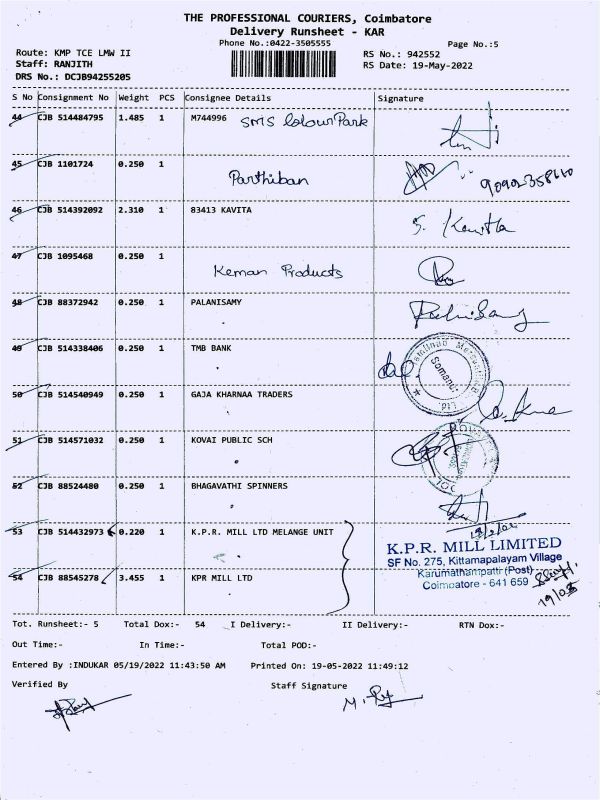 THE PROFESSIONAL COURIERS, Coimbatore
Delivery Runsheet - KAR
Phone No.:0422-3505555
Page No.:5
Route: KMP TCE LMW II
RS No.: 942552
Staff: RANJITH
RS Date: 19-May-2022
DRS No.: DCJB94255205
S No Consignment No Weight PCS Consignee Details Signature
44 CJB 514484795 1.485 1 M744996 SMS Colour Park
45 CJB 1101724 0.250 1
Parthiban
46 CJB 514392092 2.310 1 83413 KAVITA
S. Kavitha
47 CJB 1095468 0.250 1
Keman Products
48 CJB 88372942 0.250 1 PALANISAMY
49 CJB 514338406 0.250 1 TMB BANK
Somanur
50 CJB 514540949 0.250 1 GAJA KHARNAA TRADERS
51 CJB 514571032 0.250 1 KOVAI PUBLIC SCH
52 CJB 88524480 0.250 1 BHAGAVATHI SPINNERS
53 CJB 514432973 0.220 1 K.P.R. MILL LTD MELANGE UNIT
K.P.R. MILL LIMITED
SF No. 275, Kittamapalayam Village
Karumathampatti (Post)
Coimbatore - 641 659
54 CJB 88545278 3.455 1 KPR MILL LTD
19/05
Tot. Runsheet:- 5 Total Dox:- 54 I Delivery:- II Delivery:- RTN Dox:-
Out Time:- In Time:- Total POD:-
Entered By :INDUKAR 05/19/2022 11:43:50 AM Printed On: 19-05-2022 11:49:12
Verified By Staff Signature